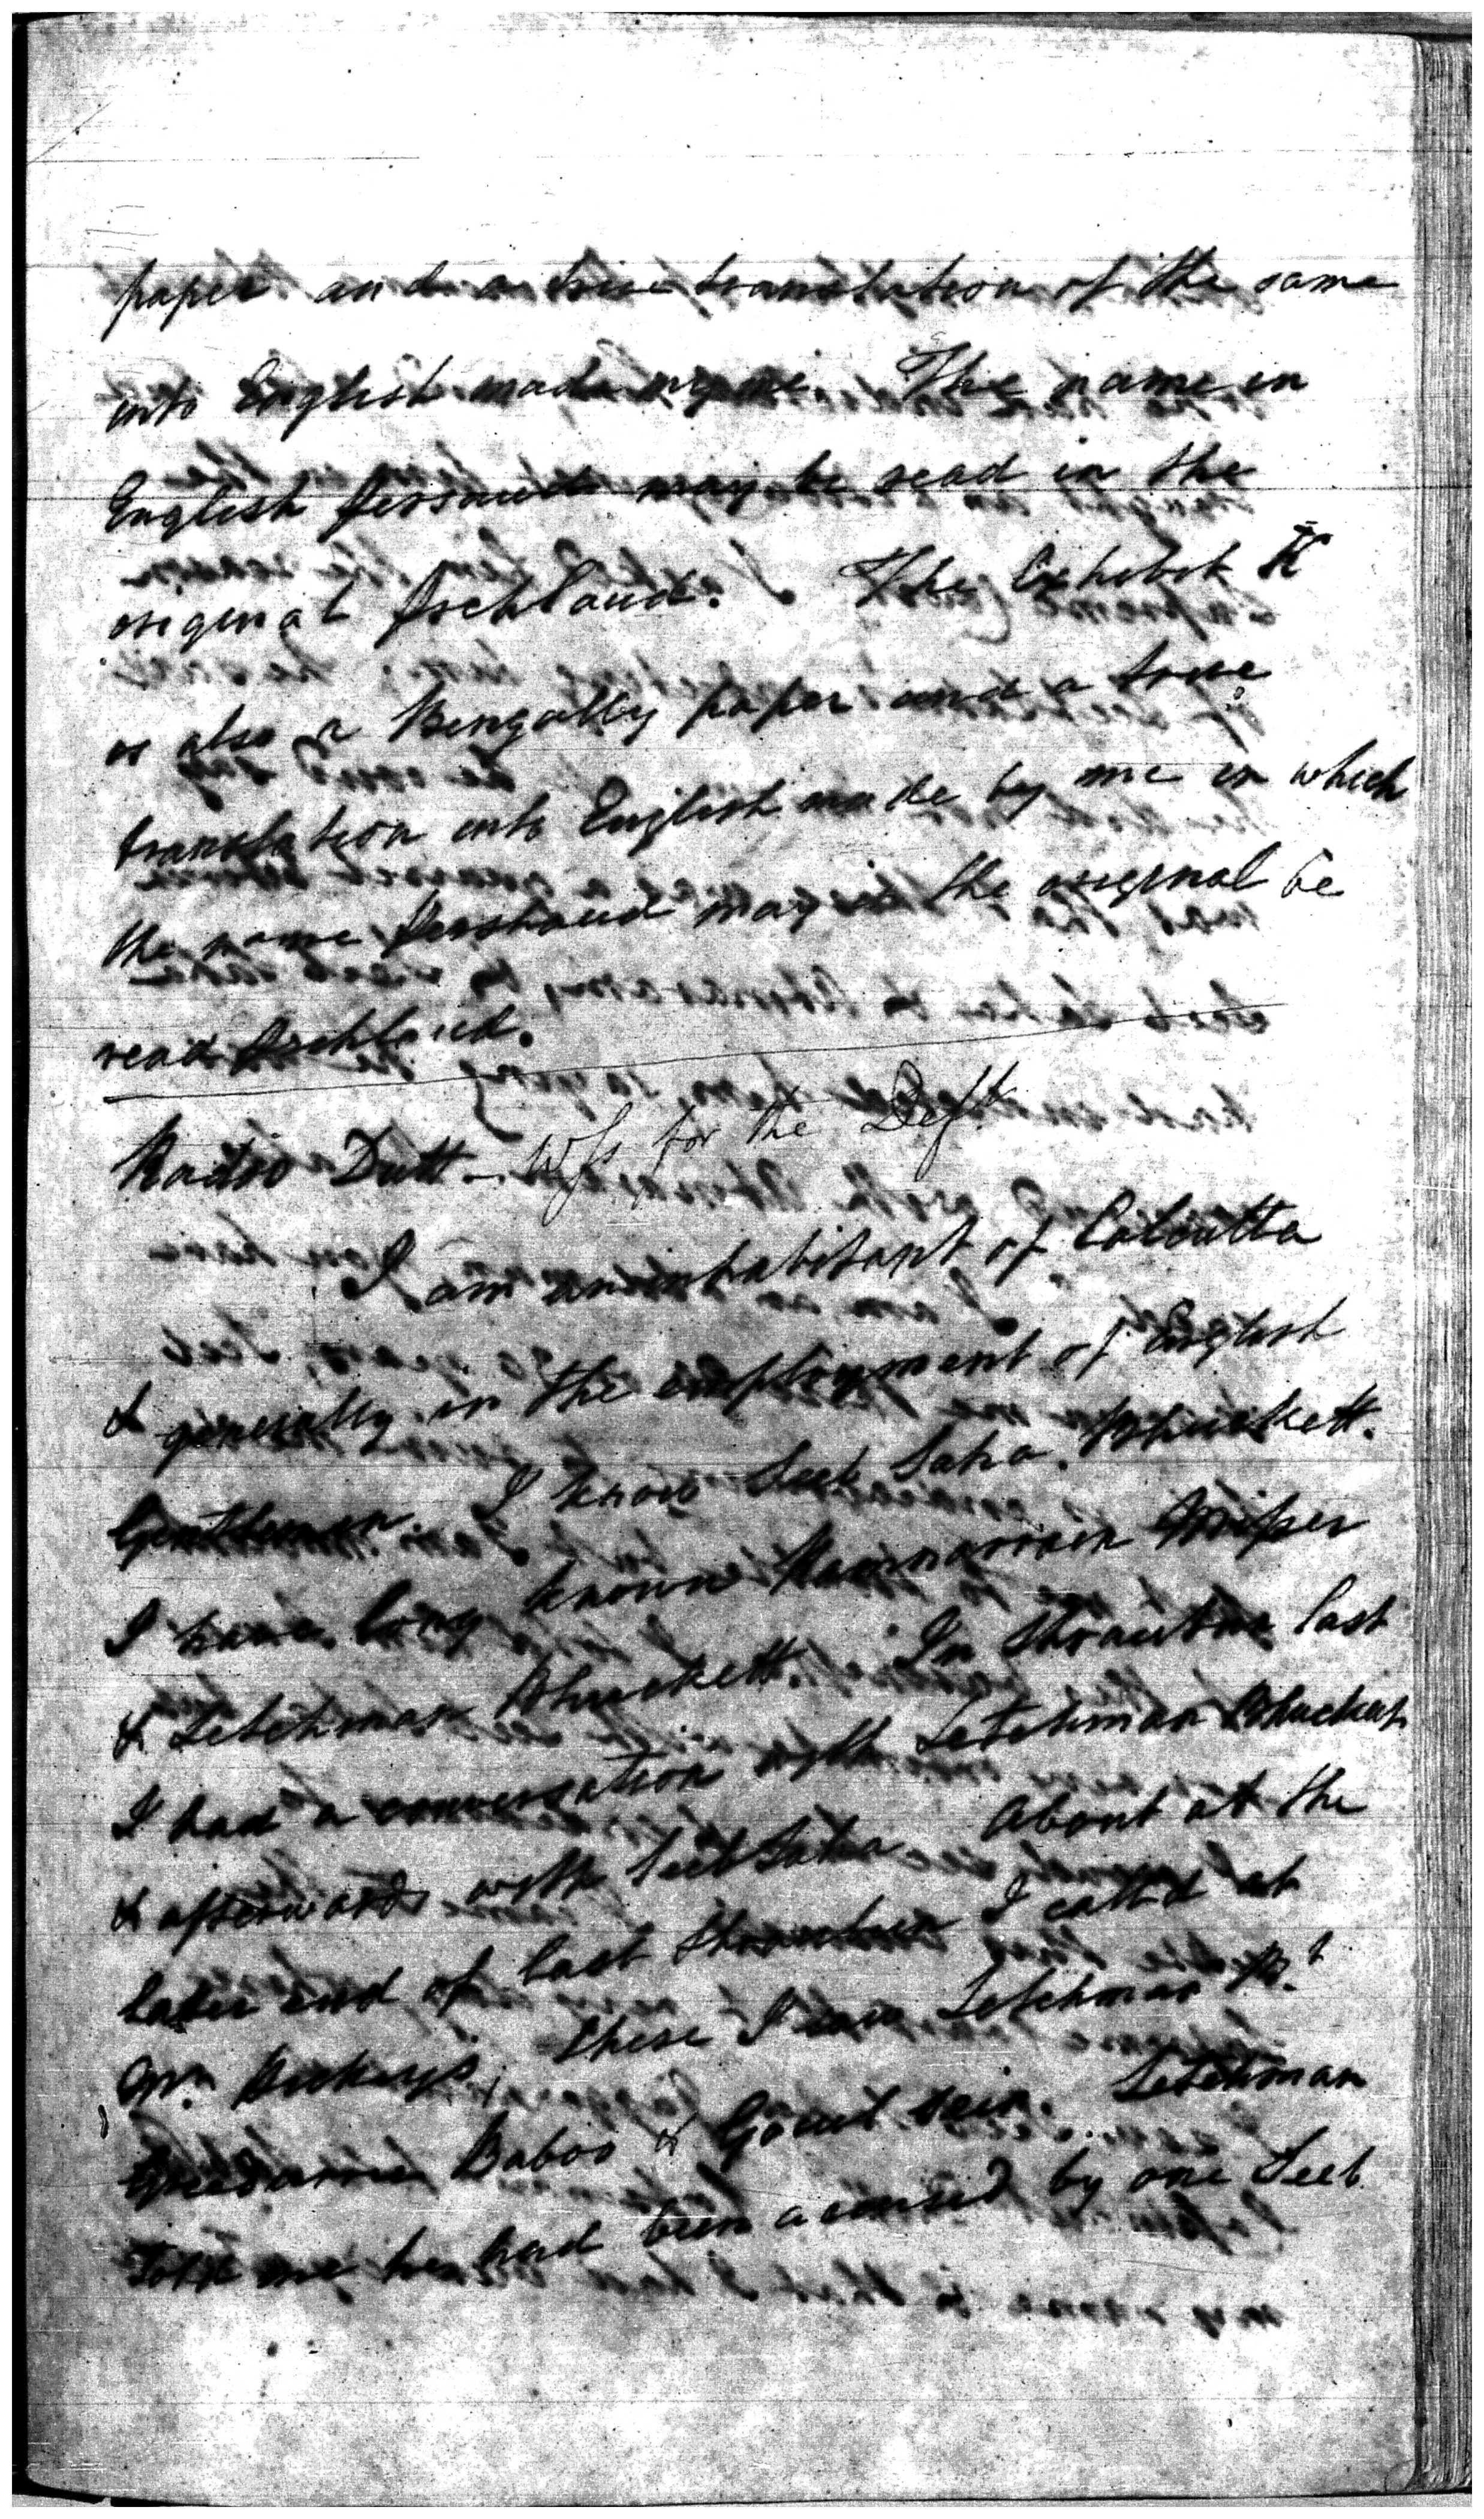 paper and a true translation of the same
into English made by me. The name in
English Persaud may be read in the
original Pschlaud. The Exhibit K
is also a Bengally paper and a true
translation into English made by me in which
the name Pershaud may in the original be
read Pschlaud.
Radoo Dutt - Wss for the Deft.
I am an inhabitant of Calcutta
& generally in the employment of English
Gentlemen I know Seeb Saha Bhuckett.
I have long known Ramnarrain Misser
& Letchman Bhuckett. In Shrawbun last
I had a conversation with Letchman Bhuckut
& afterwards with Seeb Saha About at the
later end of last Shrawbun I call'd at
there I saw Letchman Bt
Baboo & Letchman
told me he had been accused by one Seeb